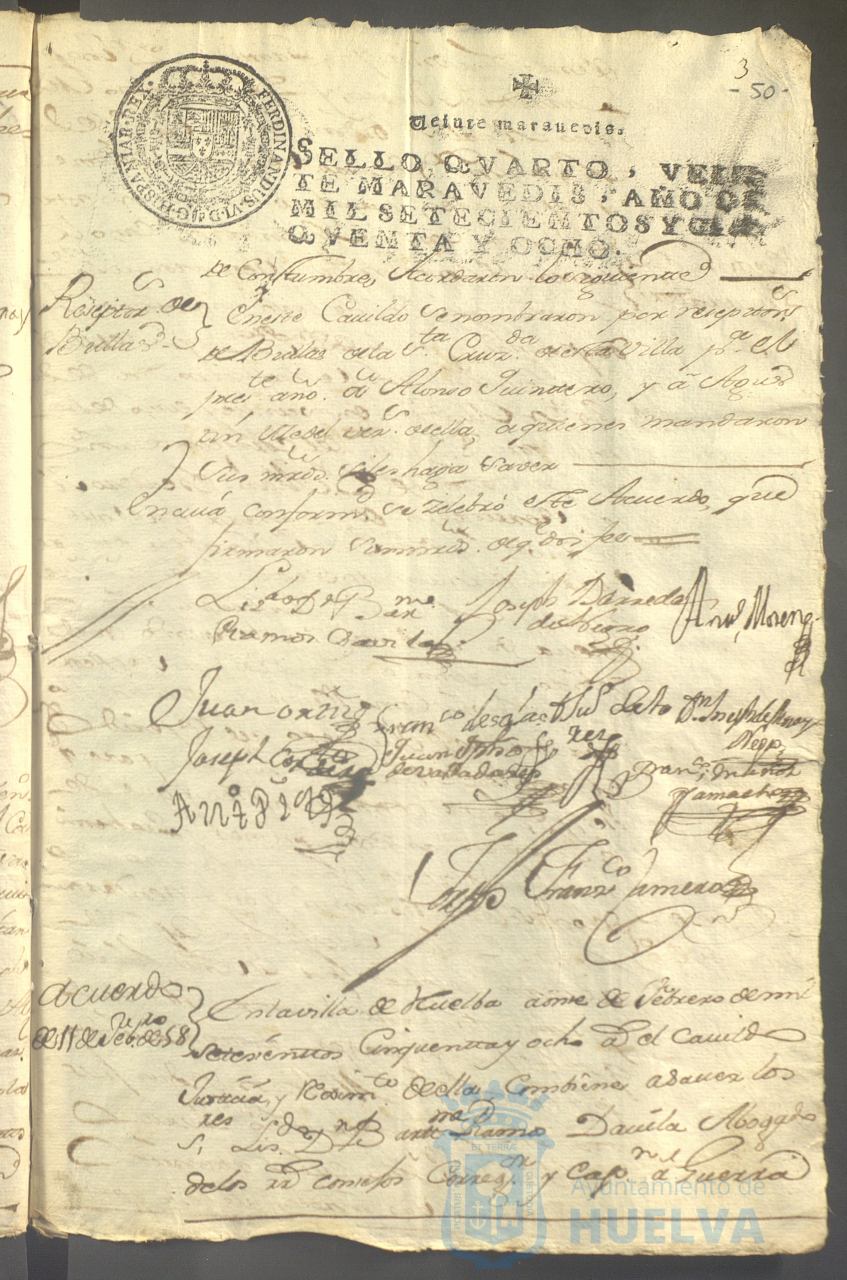 3
-50-
FERDINANDUS.VI.D.G.HISPANIAR.REX.
Veinte marauedis.
SELLO QVARTO, VEIN
TE MARAVEDIS, AÑO D
MIL SETECIENTOS Y CI
QVENTA Y OCHO.
de Costumbre, Acordaron lo siguiente
Reseptores de
Bullas
Eneste Cavildo se nombraron por reseptores
de Bulas de la Sta Cruzda de esta Villa pa el
prete año. a Alonso Quintero, y a Agus
tin vezs de ella, a quienes mandaron
sus mrds. se les haga saver
En cuia conformd se zelebró este Acuerdo, que
firmaron sus mrds. de q. doi fee
Lizdo Dn Barme
Ramos Davila
Joseph Barreda
Anto Moreno
Juan
Franco
Joseph
Juan
Franco
Joseph Franco
Acuerdo
de 11 de Febro de 58
En la villa de Huelba a onse de Febrero de mil
setesenttos Cinquentta y ocho as el Cavildo
Justicia, y Rexim.to de ella Combiene a saver los
sres Lisdo Dn Barme Ramos Davila Abogado
de los Rs consejos Corregor y Capn a Guerra
Ayuntamiento de
HUELVA